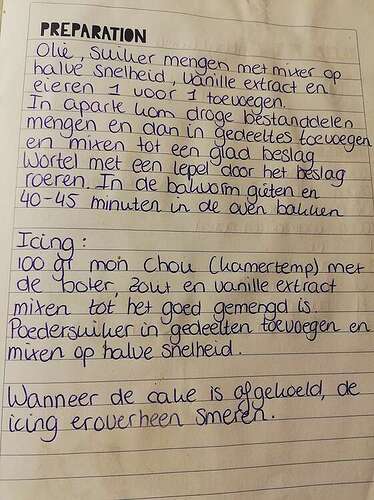 PREPARATION
Olie, Suiker mengen met mixer op
halve snelheid, vanille extract en
eieren 1 voor 1 toevoegen.
In aparte kom droge bestanddelen
mengen en dan in gedeeltes toevoegen
en mixen tot een glad beslag
Wortel met een lepel door het beslag
roeren. In de bakvorm gieten en
40-45 minuten in de oven bakken
Icing:
100 gr mon Chou (kamertemp) met
de boter, zout en vanille extract
mixen tot het goed gemengd is.
Poedersuiker in gedeelten toevoegen en
mixen op halve snelheid.
Wanneer de cake is afgekoeld, de
icing eroverheen smeren.